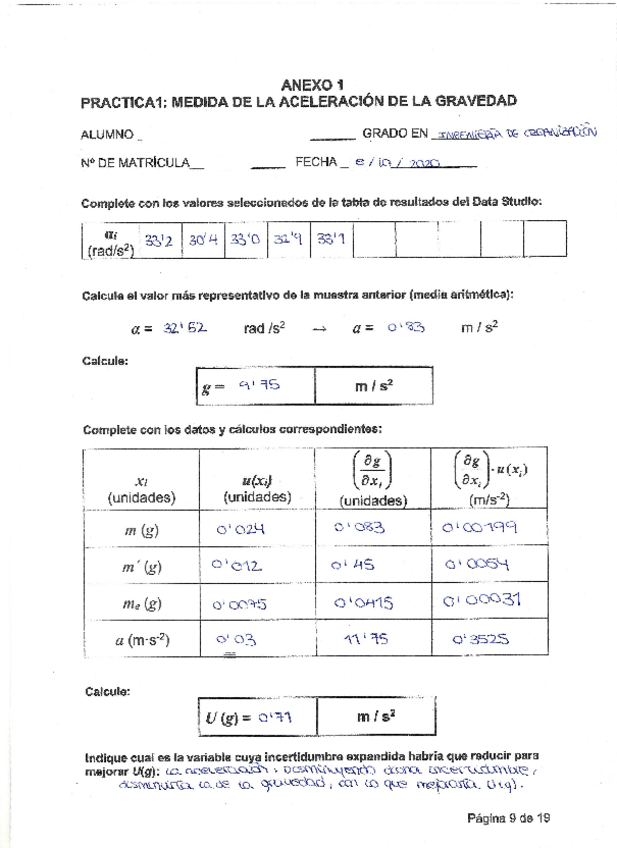 ANEXO 1
PRACTICA1: MEDIDA DE LA ACELERACIÓN DE LA GRAVEDAD
ALUMNO _ ______ GRADO EN INGENIERÍA DE ORGANIZACIÓN
Nº DE MATRÍCULA__ ____ FECHA _ 8/10/2020
Complete con los valores seleccionados de la tabla de resultados del Data Studio:
αi (rad/s²) 33'2 30'4 33'0 32'9 33'1
Calcule el valor más representativo de la muestra anterior (media aritmética):
α = 32'52 rad /s² → a = 0'83 m / s²
Calcule:
g = 9'75 m / s²
Complete con los datos y cálculos correspondientes:
xi (unidades) u(xi) (unidades) (∂g/∂xi) (unidades) (∂g/∂xi)·u(xi) (m/s⁻²)
m (g) 0'024 0'083 0'00199
m´ (g) 0'012 0'45 0'0054
me (g) 0'0075 0'0415 0'00031
a (m·s⁻²) 0'03 11'75 0'3525
Calcule:
U (g) = 0'71 m / s²
Indique cual es la variable cuya incertidumbre expandida habría que reducir para
mejorar U(g): La aceleración; Disminuyendo dicha incertidumbre,
disminuiría la de la gravedad, con lo que mejoraría U(g).
Página 9 de 19